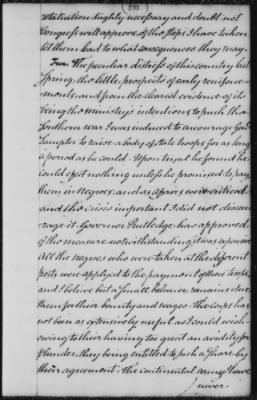 232
situation highly necessary and doubt not
Congress will approve of the steps I have taken
let them lead to what consequences they may.
From the peculiar distress of this country last
Spring, the little prospects of early reinforce-
ments and from the clearest evidence of its
being the ministry's intentions to push the
Southern war I was induced to encourage Genl
Sumpter to raise a body of State troops for as long
a period as he could. Upon tryal he found he
could effect nothing unless he promised to pay
them in Negroes, and as affairs were critical
and the crisis important I did not discou-
rage it. Governor Rutledge has approved
of the measure notwithstanding it was expensive
All the negroes who were taken at the different
posts were applyed to the payment of these troops,
and I believe but a small balance remains due
them for their bounty and wages. The corps has
not been as extensively useful as I could wish
owing to their having too great an avidity for
plunder, they being entitled to such a share by
their agreement. The continental army I have
never